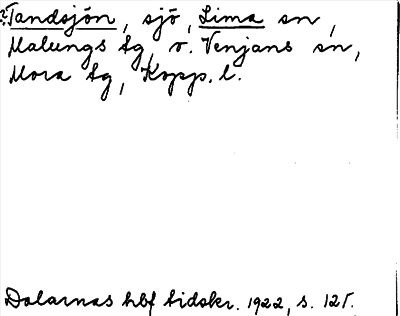 Tandsjön, sjö, Lima sn,
Malungs tg, o. Venjans sn,
Mora tg, Kopp. l.
Dalarnas hbf tidskr. 1922, s. 125.